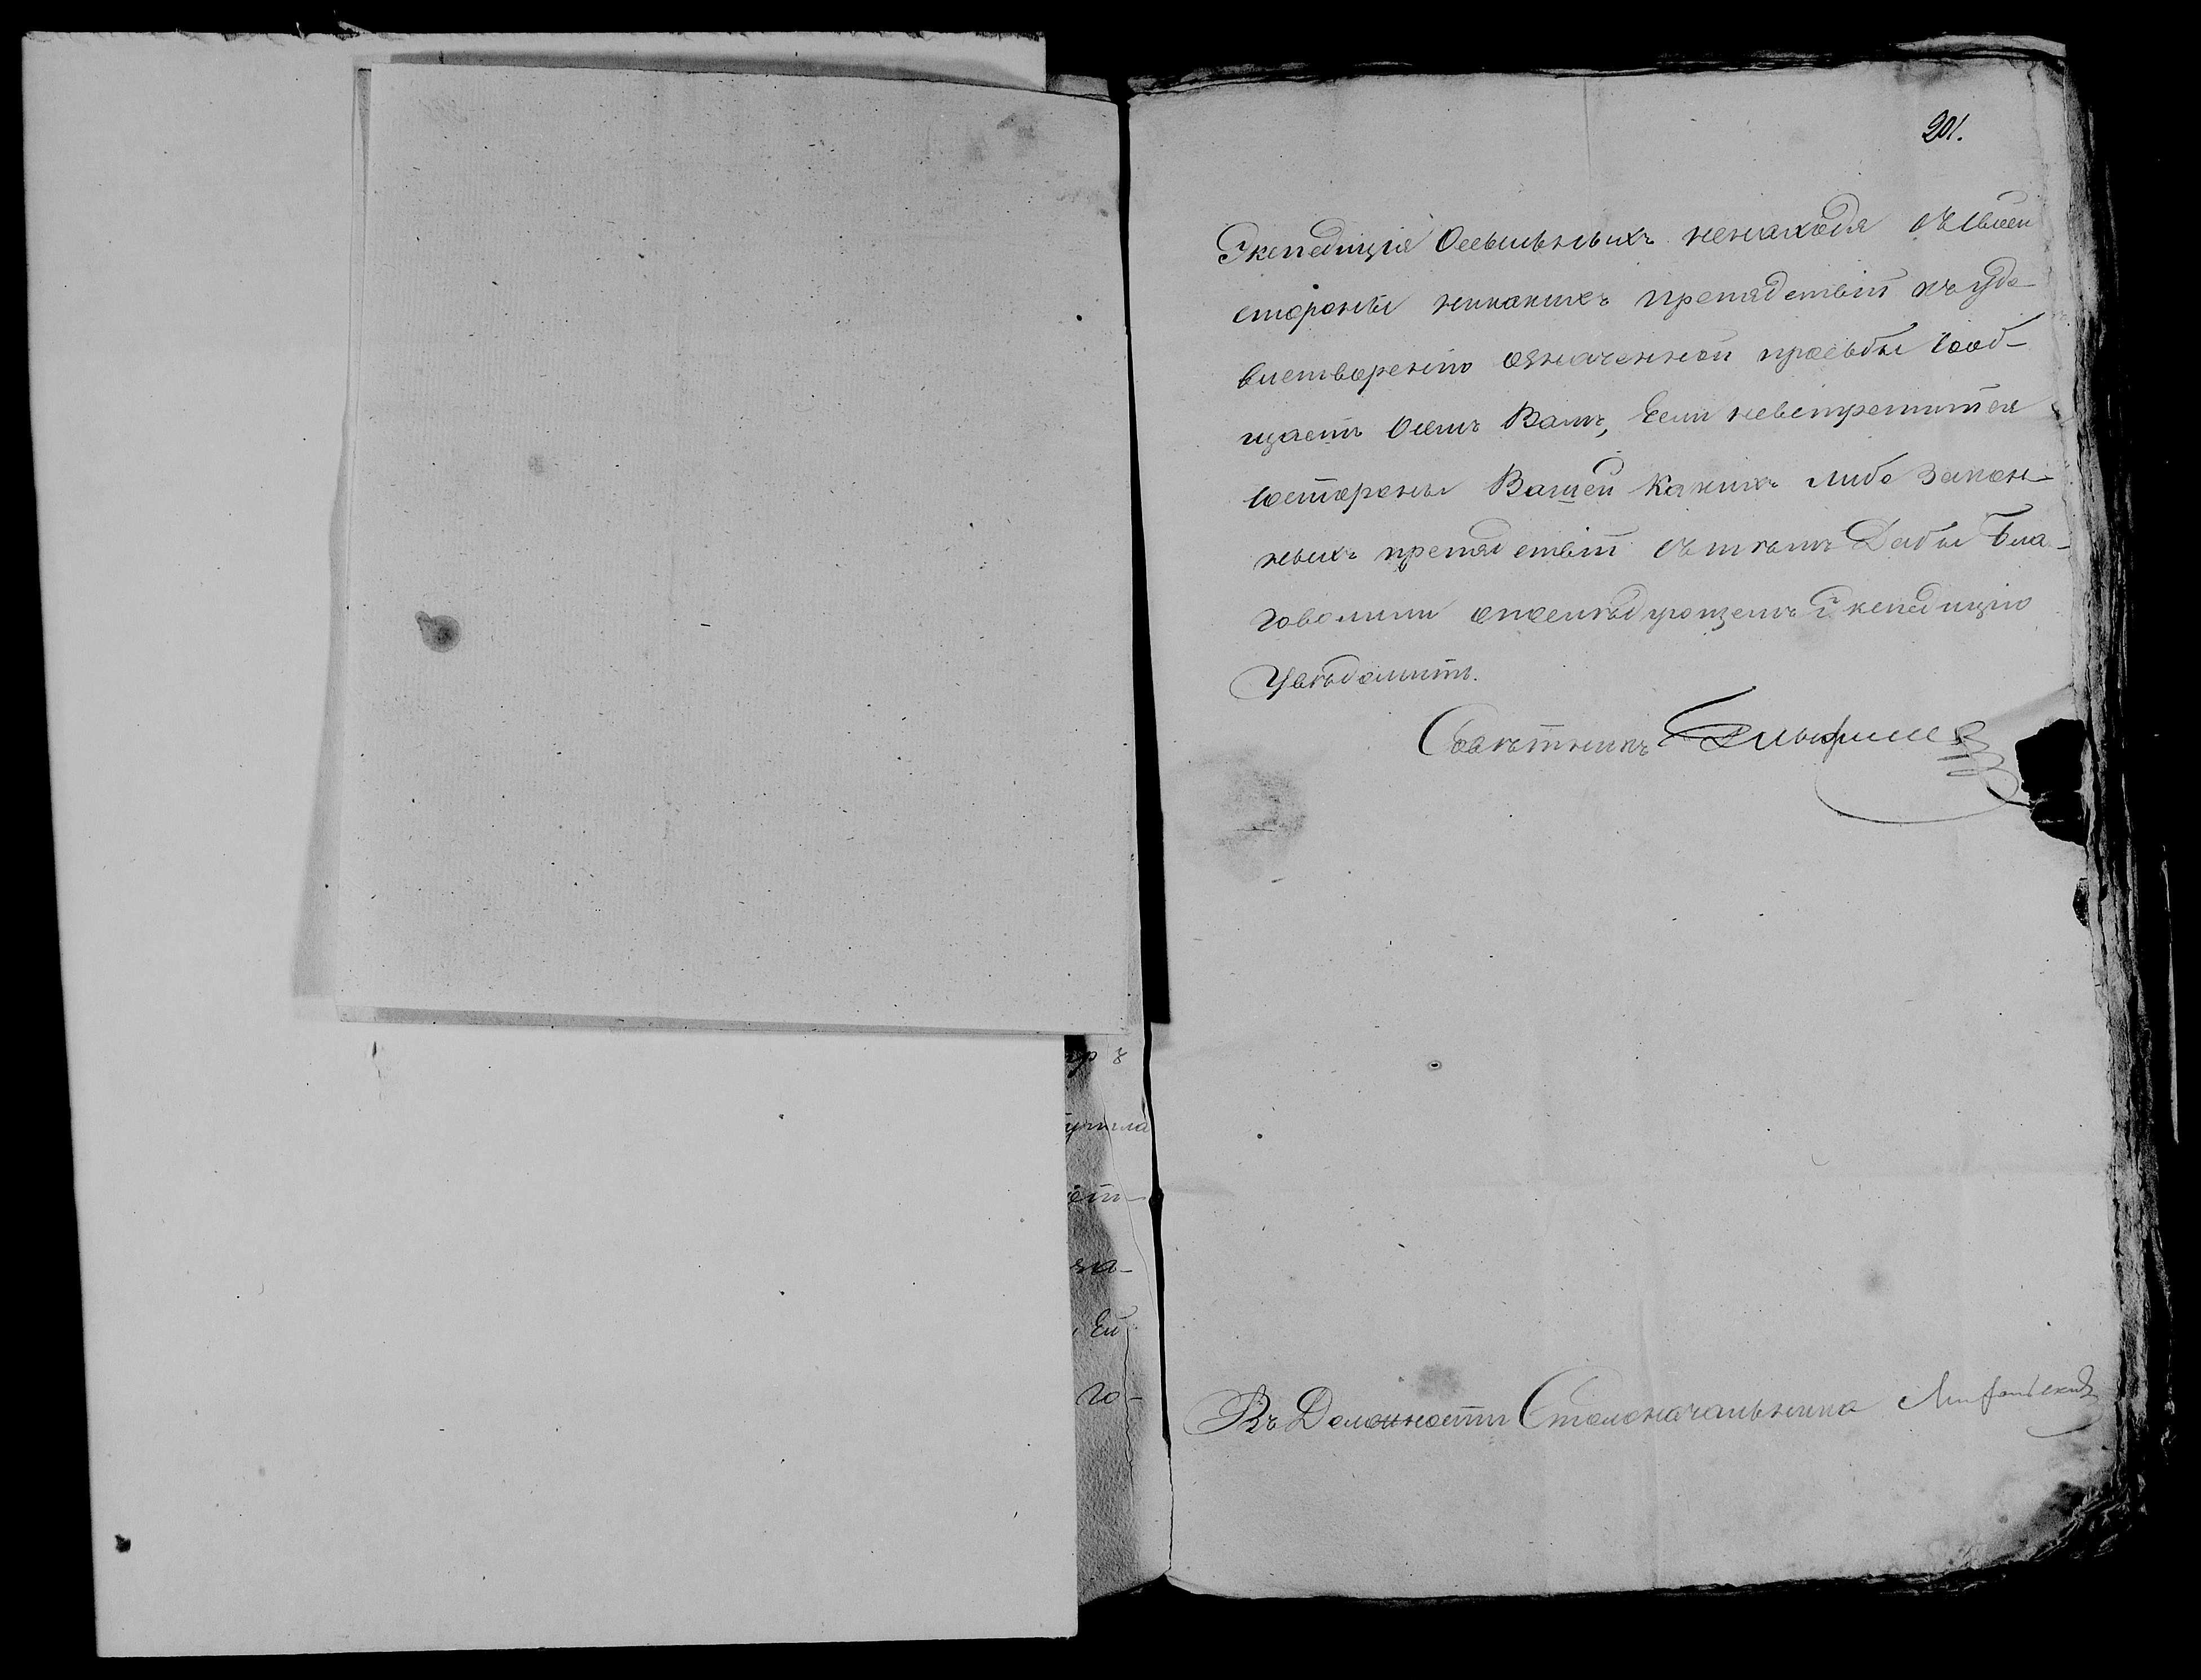 201.
Экспедиція Оссыльныхъ ненаходя съ своей
стороны никакихъ препядствій къ удо-
влетворенію означенной просьбы сооб-
щаетъ Осемъ Вамъ, Если невстретится
состороны Вашей какихъ либо закон-
ныхъ препядствій съ тѣмъ Дабы Бла-
говолили опоследующемъ Экспедицію
Увѣдомить.
Совѣтникъ
Въ Должности Столоначальника
утла
ст-
за-
Ей
го-